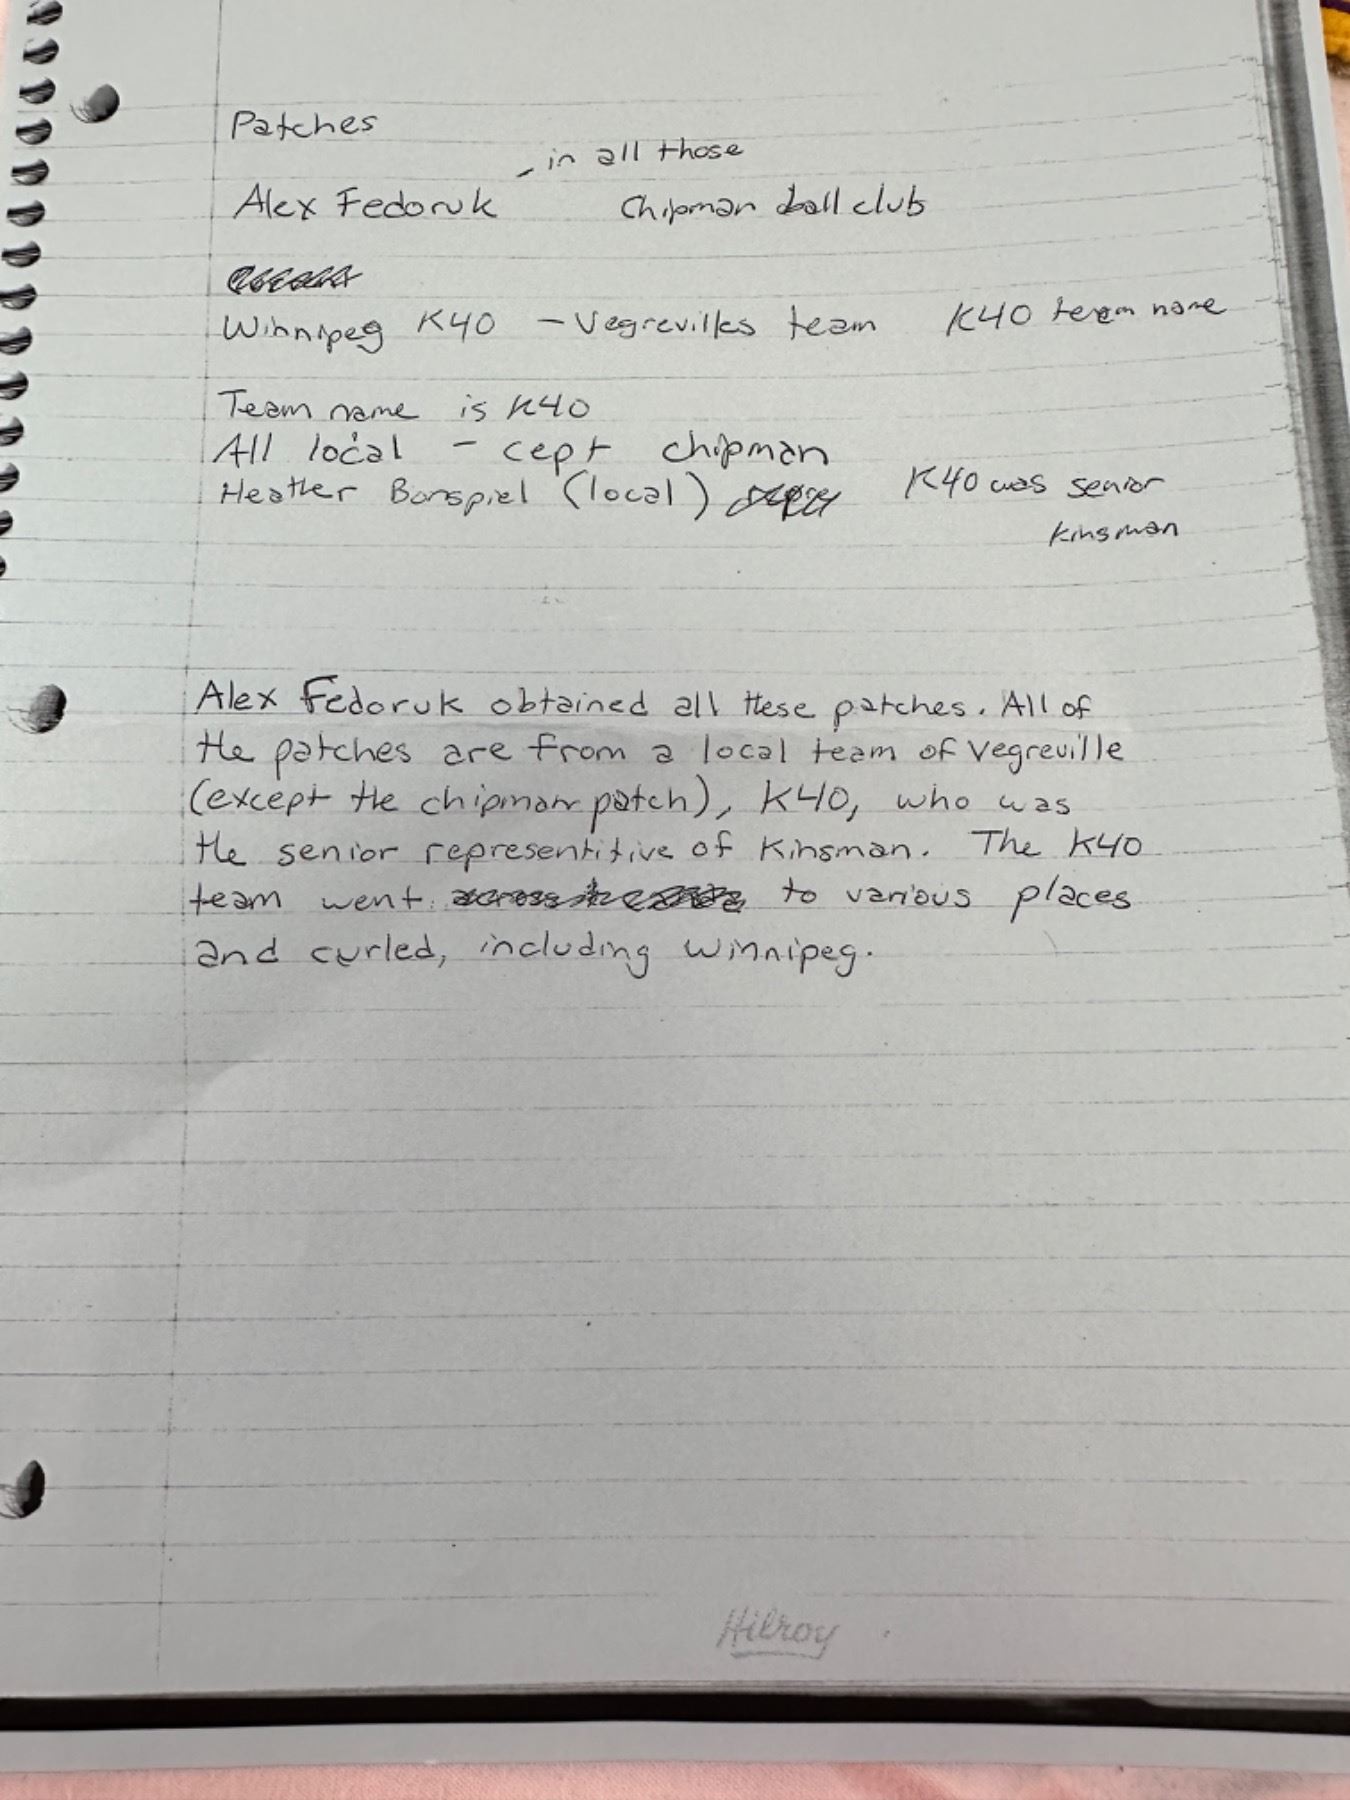 Patches
- in all those
Alex Fedoruk Chipman ball club
Winnipeg K40 - Vegrevilles team K40 team name
Team name is K40
All local - cept chipman
Heather Bonspiel (local) K40 was senior
Kinsman
Alex Fedoruk obtained all these patches. All of
the patches are from a local team of Vegreville
(except the chipman patch), K40, who was
the senior representitive of Kinsman. The K40
team went to various places
and curled, including Winnipeg.
Hilroy